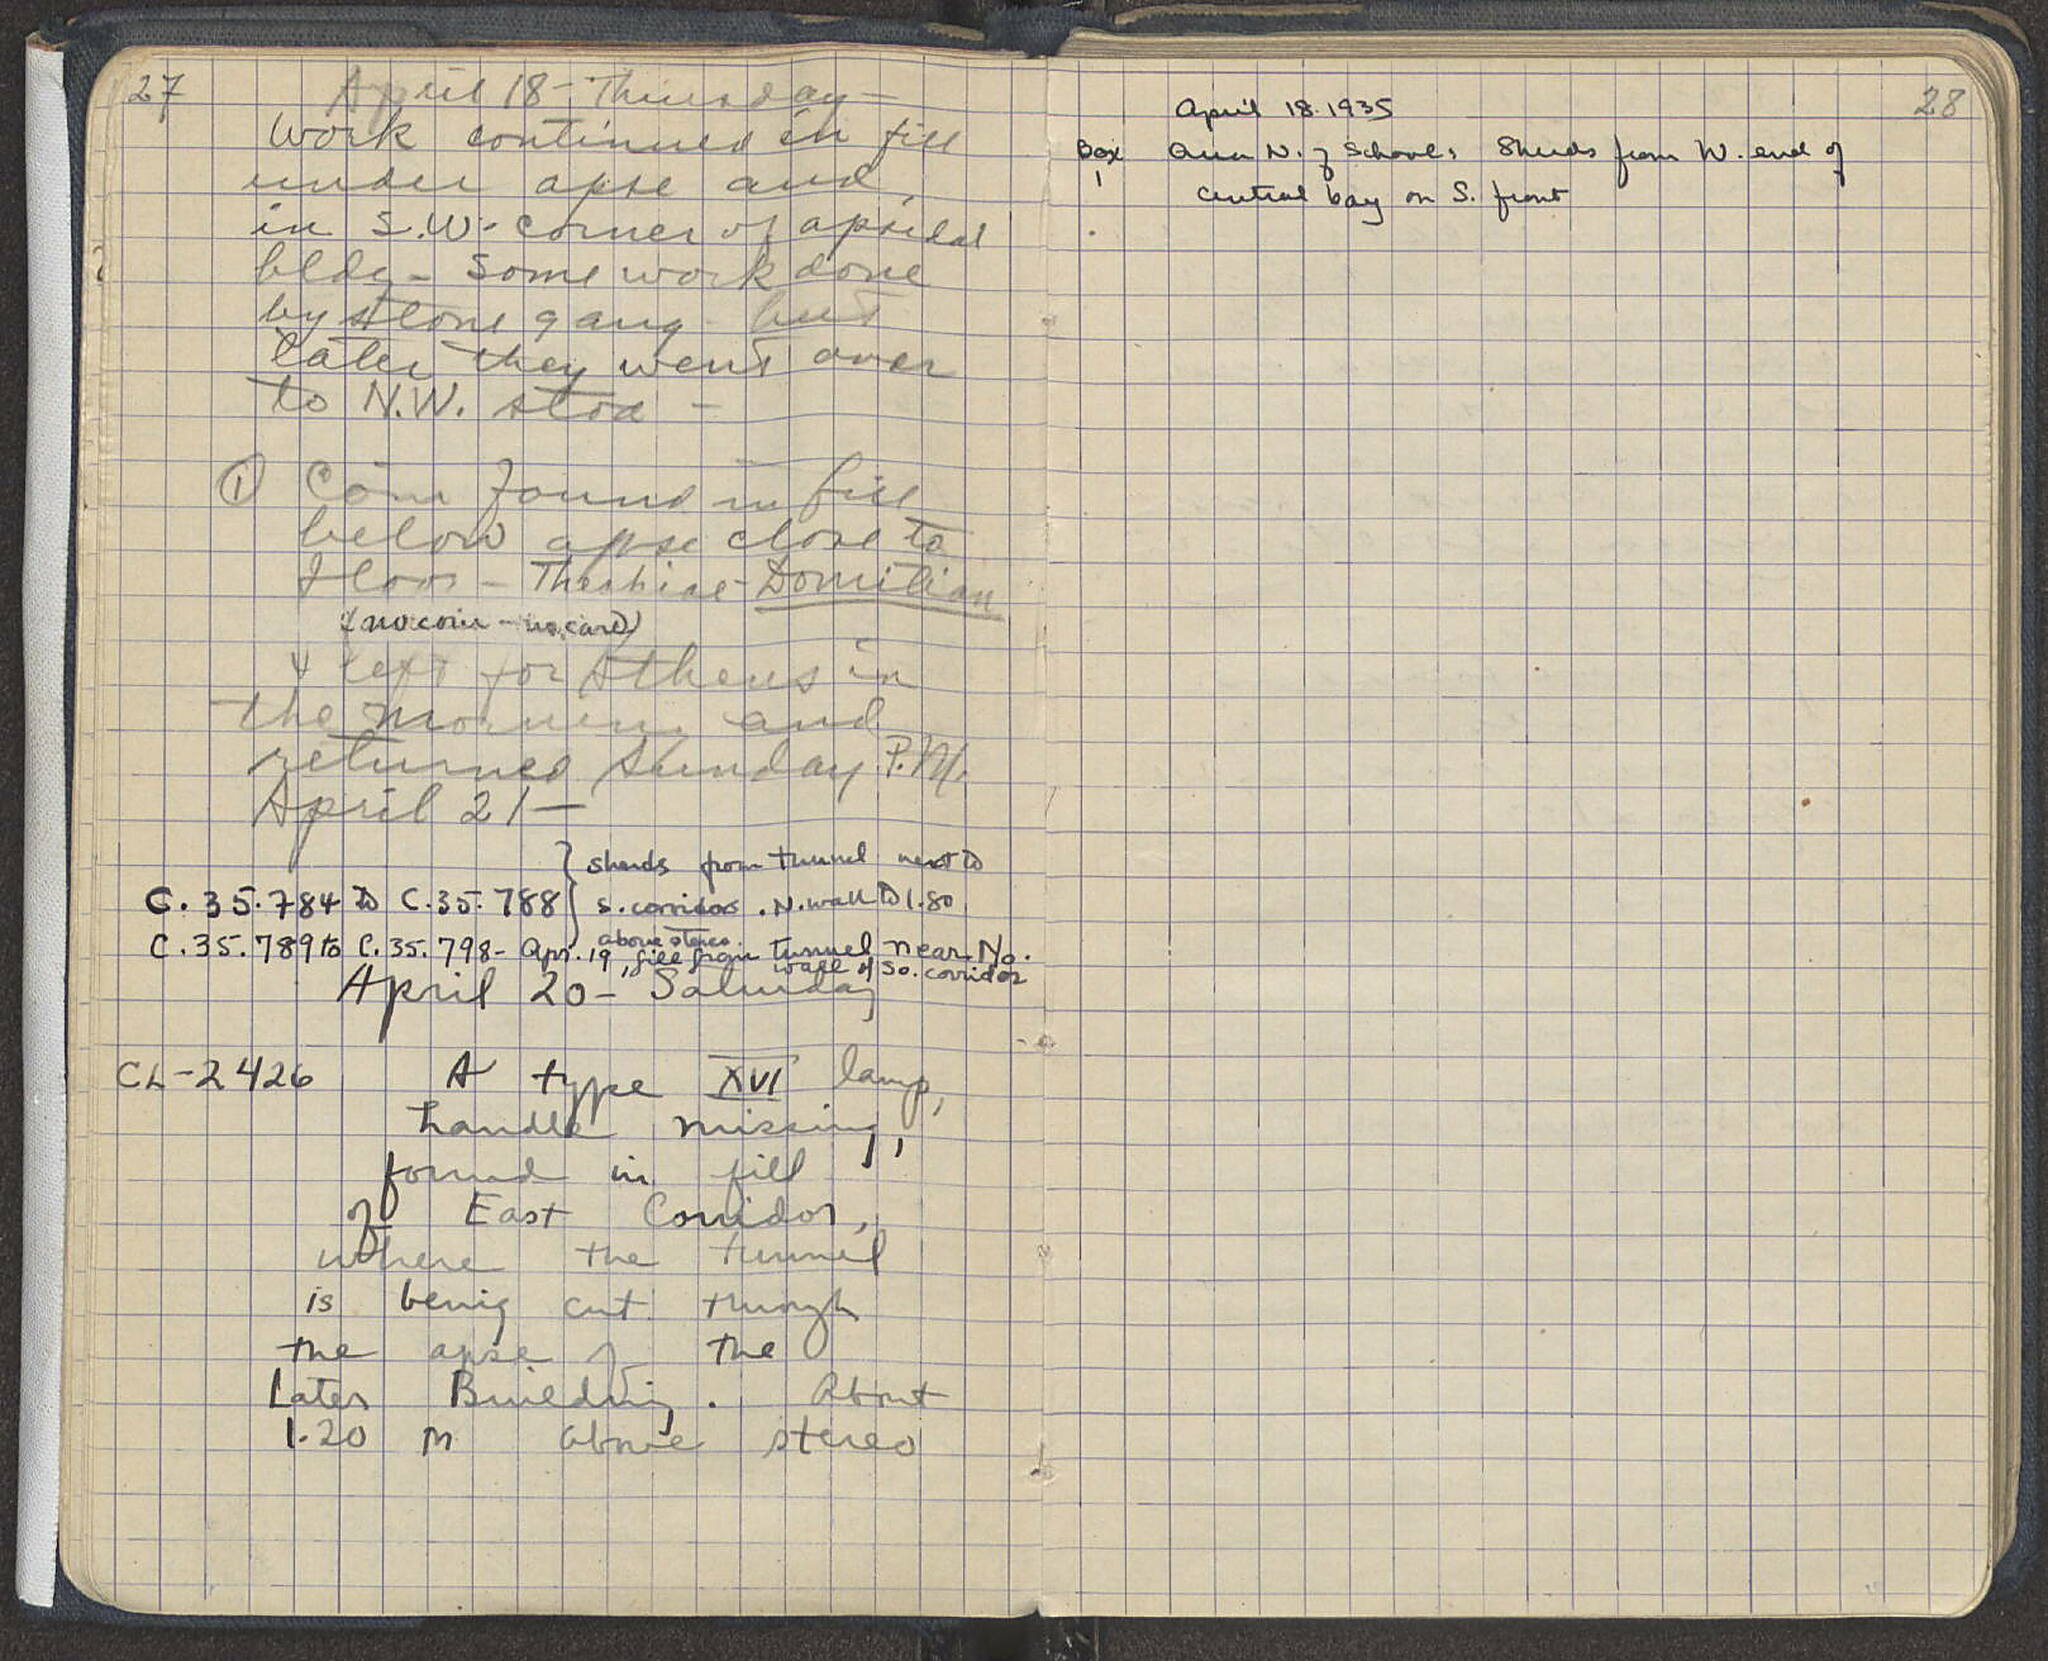 27
April 18 - Thursday -
Work continued in fill
under apse and
in S.W. corner of apsidal
bldg - Some work done
by stone gang - but
later they went over
to N.W. stoa -
① Coin found in fill
below apse close to
floor - Thespiae - Domitian
(no coin - no card)
I left for Athens in
the morning and
returned Sunday P.M.
April 21 -
sherds from tunnel next to
C.35.784 to C.35.788 } S. corridor. N. wall to 1.80
above stereo.
C.35.789 to C.35.798 - Apr. 19, fill from tunnel near No.
wall of So. corridor
April 20 - Saturday
CL-2426 A type XVI lamp,
handle missing,
found in fill
of East Corridor,
where the tunnel
is being cut through
the apse of the
Later Building. About
1.20 m above stereo
28
April 18. 1935
Box Area N. of School: Sherds from W. end of
1 central bay on S. front